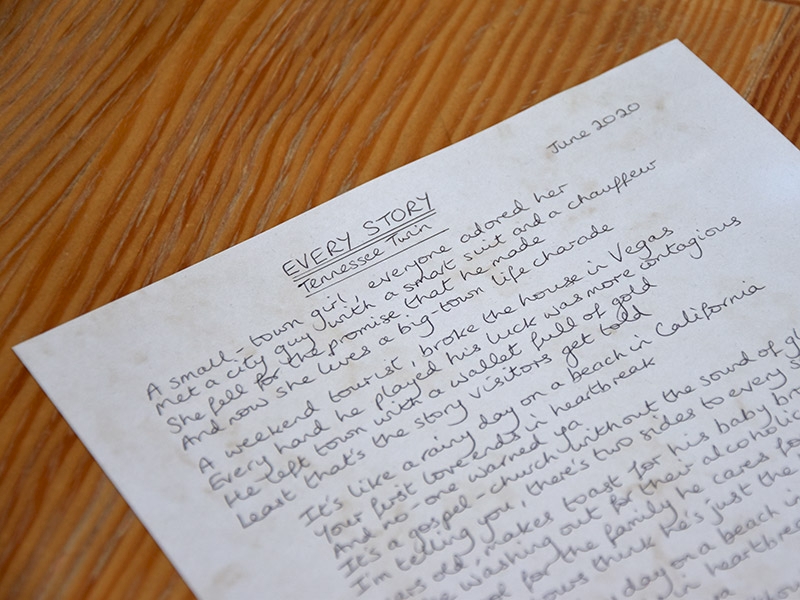 June 2020
EVERY STORY
Tennessee Twin
A small-town girl, everyone adored her
met a city guy with a smart suit and a chauffeur
She fell for the promise that he made
And now she lives a big-town life charade
A weekend tourist, broke the house in Vegas
Every hand he played his luck was more contagious
He left town with a wallet full of gold
Least that's the story visitors get told
It's like a rainy day on a beach in California
Your first love ends in heartbreak
And no-one warned ya
It's a gospel-church without the sound of
I'm telling you, there's two sides to every
old, makes toast for his baby
washing out for their alcoholic
for the family he cares
think he's just the
day on a beach in
in